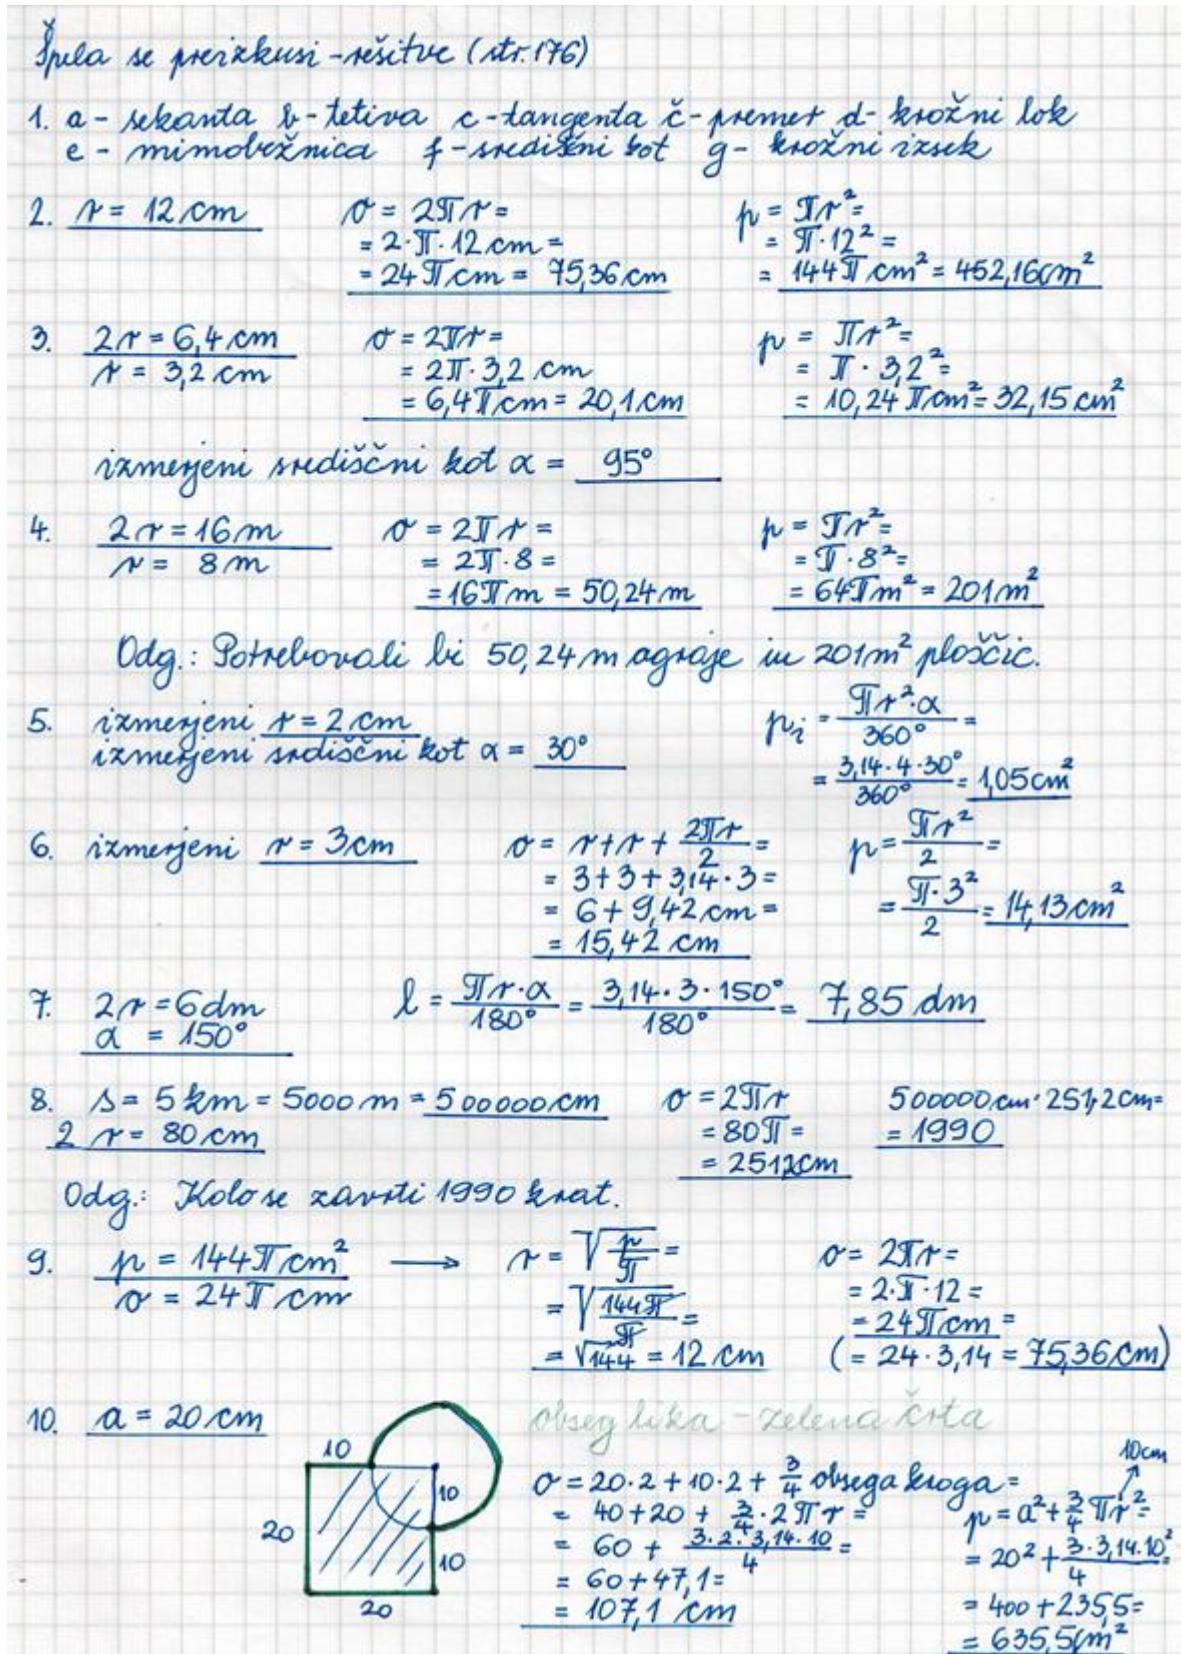 Špela se preizkusi - rešitve (str. 176)
1. a - sekanta b - tetiva c - tangenta č - premer d - krožni lok
e - mimobežnica f - središčni kot g - krožni izsek
2. r = 12 cm
o = 2πr =
= 2·π·12 cm =
= 24π cm = 75,36 cm
p = πr² =
= π·12² =
= 144π cm² = 452,16 cm²
3. 2r = 6,4 cm
r = 3,2 cm
o = 2πr =
= 2π·3,2 cm
= 6,4π cm = 20,1 cm
p = πr² =
= π·3,2² =
= 10,24π cm² = 32,15 cm²
izmerjeni središčni kot α = 95°
4. 2r = 16 m
r = 8 m
o = 2πr =
= 2π·8 =
= 16π m = 50,24 m
p = πr² =
= π·8² =
= 64π m² = 201 m²
Odg.: Potrebovali bi 50,24 m ograje in 201 m² ploščic.
5. izmerjeni r = 2 cm
izmerjeni središčni kot α = 30°
p_i = πr²·α / 360° =
= 3,14·4·30° / 360° = 1,05 cm²
6. izmerjeni r = 3 cm
o = r + r + 2πr / 2 =
= 3 + 3 + 3,14·3 =
= 6 + 9,42 cm =
= 15,42 cm
p = πr² / 2 =
= π·3² / 2 = 14,13 cm²
7. 2r = 6 dm
α = 150°
l = πr·α / 180° = 3,14·3·150° / 180° = 7,85 dm
8. s = 5 km = 5000 m = 500000 cm
2 r = 80 cm
o = 2πr
= 80π =
= 251,2 cm
500000 cm : 251,2 cm =
= 1990
Odg.: Kolo se zavrti 1990 krat.
9. p = 144π cm²
o = 24π cm
→ r = √(p / π) =
= √(144π / π) =
= √144 = 12 cm
o = 2πr =
= 2·π·12 =
= 24π cm =
(= 24·3,14 = 75,36 cm)
10. a = 20 cm
10
10
20
10
20
obseg lika - zelena črta
o = 20·2 + 10·2 + 3/4 obsega kroga =
= 40 + 20 + 3/4·2πr =
= 60 + 3·2·3,14·10 / 4 =
= 60 + 47,1 =
= 107,1 cm
10 cm
p = a² + 3/4 πr² =
= 20² + 3·3,14·10² / 4 =
= 400 + 235,5 =
= 635,5 cm²